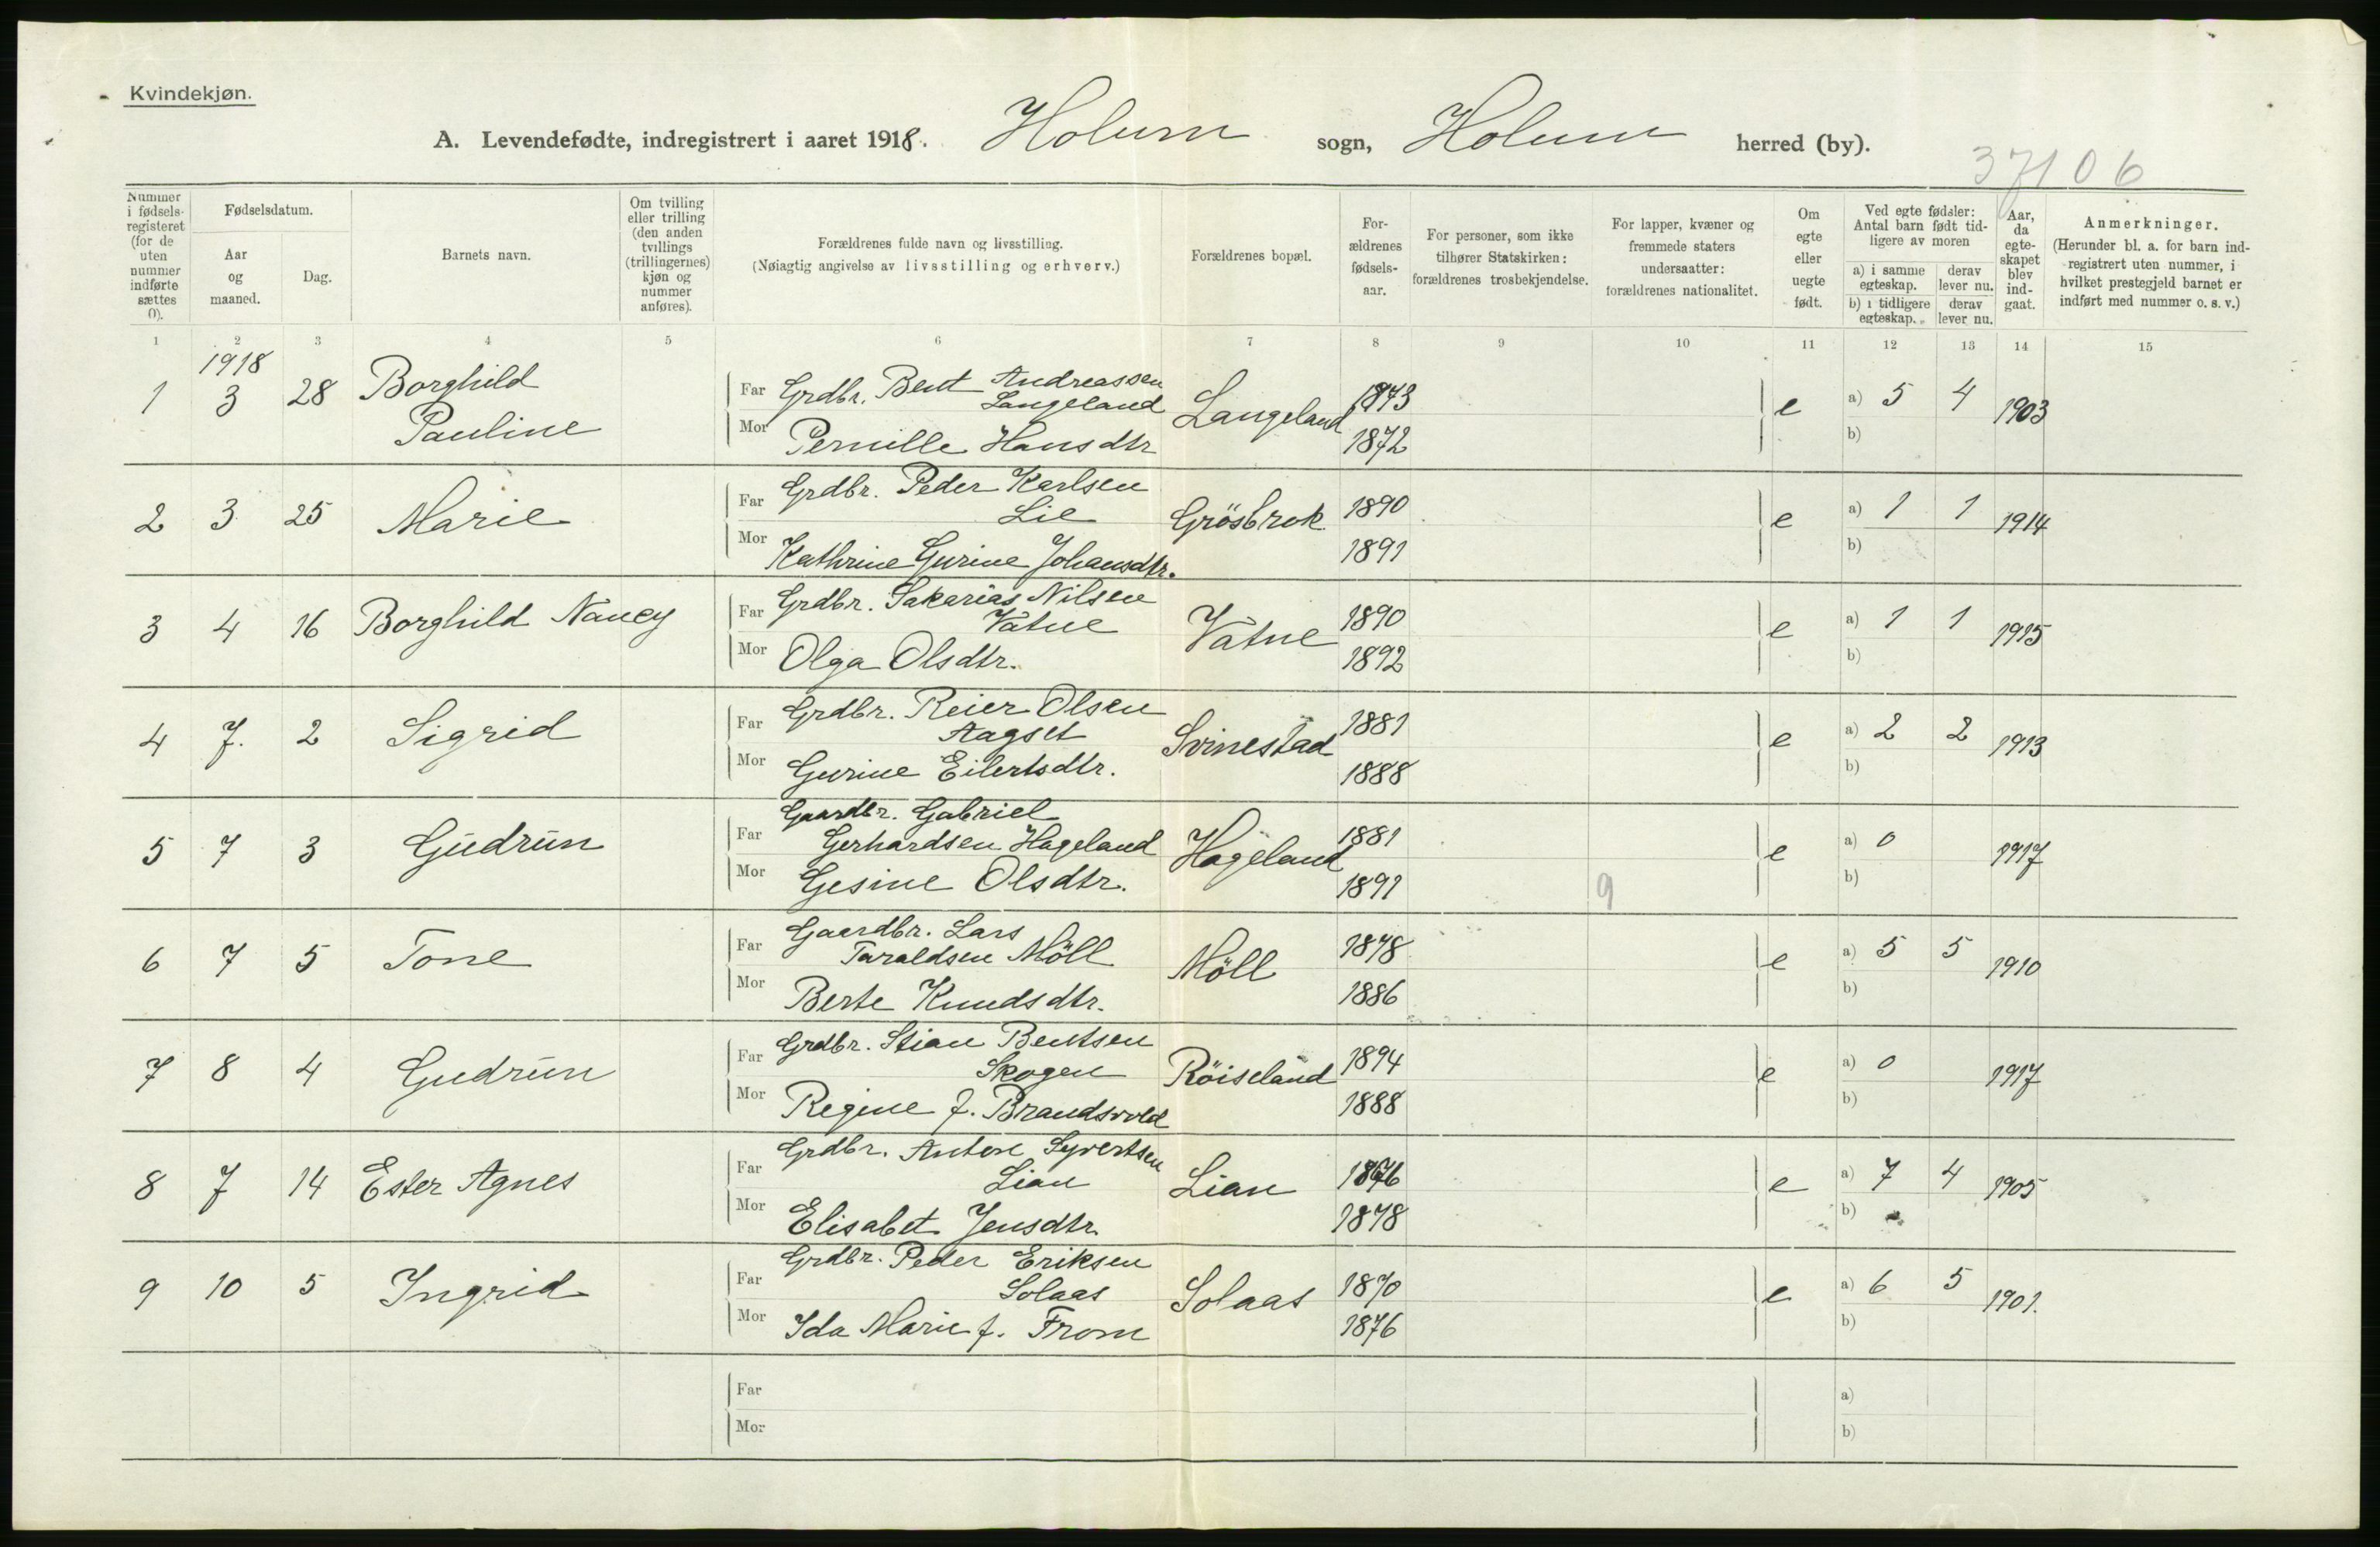 Kvindekjøn.
A. Levendefødte, indregistrert i aaret 1918. Holum sogn, Holum herred (by).
37106
Nummer i fødsels-registeret (for de uten nummer indførte sættes 0).
Fødselsdatum.
Aar og maaned.
Dag.
Barnets navn.
Om tvilling eller trilling (den anden tvillings (trillingernes) kjøn og nummer anføres).
Forældrenes fulde navn og livsstilling.
(Nøiagtig angivelse av livsstilling og erhverv.)
Forældrenes bopæl.
For-ældrenes fødsels-aar.
For personer, som ikke tilhører Statskirken: forældrenes trosbekjendelse.
For lapper, kvæner og fremmede staters undersaatter: forældrenes nationalitet.
Om egte eller uegte født.
Ved egte fødsler: Antal barn født tid-ligere av moren
a) i samme egteskap. derav lever nu.
b) i tidligere egteskap. derav lever nu.
Aar, da egte-skapet blev ind-gaat.
Anmerkninger.
(Herunder bl. a. for barn ind-registrert uten nummer, i hvilket prestegjeld barnet er indført med nummer o. s. v.)
1 2 3 4 5 6 7 8 9 10 11 12 13 14 15
1918
1 3 28 Borghild Pauline Far Grdbr. Bent Andreassen Langeland Langeland 1873 e a) 5 4 1903
Mor Pernille Hansdtr 1872 b)
2 3 25 Marie Far Grdbr. Peder Karlsen Lie Grösbrok 1890 e a) 1 1 1914
Mor Kathrine Gurine Johansdtr. 1891 b)
3 4 16 Borghild Nancy Far Grdbr. Sakarias Nilsen Vatne Vatne 1890 e a) 1 1 1915
Mor Olga Olsdtr. 1892 b)
4 7. 2 Sigrid Far Grdbr. Reier Olsen Aagset Svinestad 1881 e a) 2 2 1913
Mor Gurine Eilertsdtr. 1888 b)
5 7 3 Gudrun Far Gaardbr. Gabriel Gerhardsen Hageland Hageland 1881 e a) 0 1917
Mor Gesine Olsdtr. 1891 9 b)
6 7 5 Tone Far Gaardbr. Lars Taraldsen Möll Möll 1878 e a) 5 5 1910
Mor Berte Knudsdtr. 1886 b)
7 8 4 Gudrun Far Grdbr. Stian Bentsen Skogen Röiseland 1894 e a) 0 1917
Mor Regine f. Brandsvold 1888 b)
8 7 14 Ester Agnes Far Grdbr. Anton Syvertsen Lian Lian 1876 e a) 7 4 1905
Mor Elisabet Jensdtr. 1878 b)
9 10 5 Ingrid Far Grdbr. Peder Eriksen Solaas Solaas 1870 e a) 6 5 1901.
Mor Ida Marie f. From 1876 b)
Far a)
Mor b)